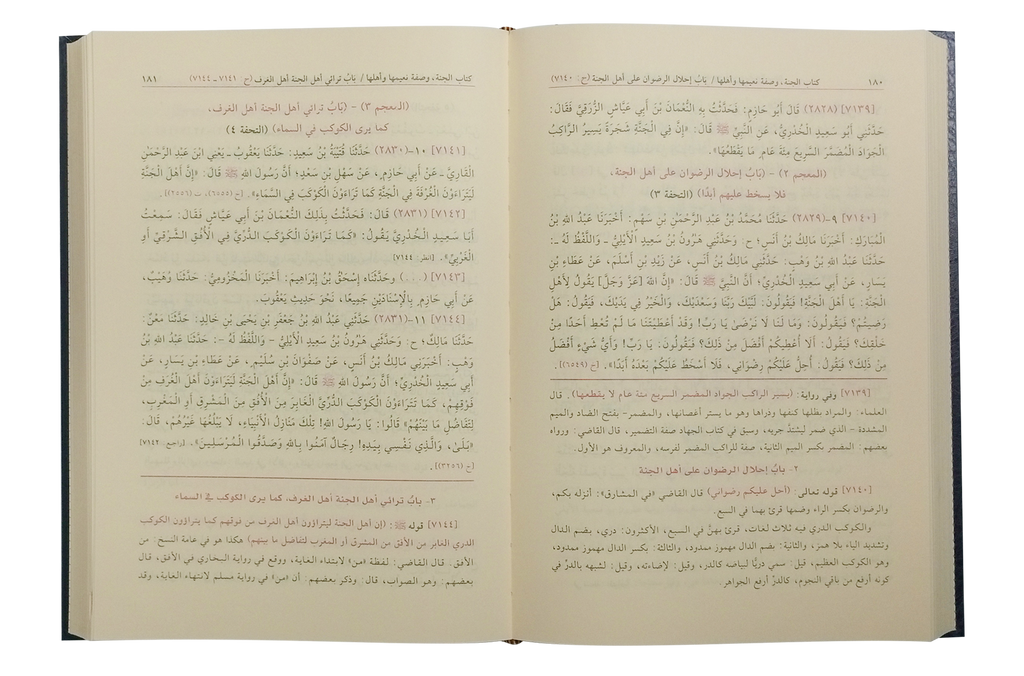 ١٨٠ كتاب الجنة، وصفة نعيمها وأهلها/ بَابُ إحلال الرضوان على أهل الجنة (ح: ٧١٤٠)
[٧١٣٩] (٢٨٢٨) قَالَ أَبُو حَازِمٍ: فَحَدَّثْتُ بِهِ النُّعْمَانَ بْنَ أَبِي عَيَّاشٍ الزُّرَقِيَّ فَقَالَ:
حَدَّثَنِي أَبُو سَعِيدٍ الْخُدْرِيُّ، عَنِ النَّبِيِّ ﷺ قَالَ: «إِنَّ فِي الْجَنَّةِ شَجَرَةً يَسِيرُ الرَّاكِبُ
الْجَوَادَ الْمُضَمَّرَ السَّرِيعَ مِئَةَ عَامٍ مَا يَقْطَعُهَا».
(المعجم ٢) - (بَابُ إحلال الرضوان على أهل الجنّة،
فلا يسخط عليهم أبدًا) (التحفة ٣)
[٧١٤٠] ٩-(٢٨٢٩) حَدَّثَنَا مُحَمَّدُ بْنُ عَبْدِ الرَّحْمَنِ بْنِ سَهْمٍ: أَخْبَرَنَا عَبْدُ اللهِ بْنُ
الْمُبَارَكِ: أَخْبَرَنَا مَالِكُ بْنُ أَنَسٍ؛ ح: وَحَدَّثَنِي هٰرُونُ بْنُ سَعِيدٍ الْأَيْلِيُّ - وَاللَّفْظُ لَهُ -:
حَدَّثَنَا عَبْدُ اللهِ بْنُ وَهْبٍ: حَدَّثَنِي مَالِكُ بْنُ أَنَسٍ، عَنْ زَيْدِ بْنِ أَسْلَمَ، عَنْ عَطَاءِ بْنِ
يَسَارٍ، عَنْ أَبِي سَعِيدٍ الْخُدْرِيِّ؛ أَنَّ النَّبِيَّ ﷺ قَالَ: «إِنَّ اللهَ [عَزَّ وَجَلَّ] يَقُولُ لِأَهْلِ
الْجَنَّةِ: يَا أَهْلَ الْجَنَّةِ! فَيَقُولُونَ: لَبَّيْكَ رَبَّنَا وَسَعْدَيْكَ، وَالْخَيْرُ فِي يَدَيْكَ، فَيَقُولُ: هَلْ
رَضِيتُمْ؟ فَيَقُولُونَ: وَمَا لَنَا لَا نَرْضَىٰ يَا رَبِّ! وَقَدْ أَعْطَيْتَنَا مَا لَمْ تُعْطِ أَحَدًا مِنْ
خَلْقِكَ؟ فَيَقُولُ: أَلَا أُعْطِيكُمْ أَفْضَلَ مِنْ ذٰلِكَ؟ فَيَقُولُونَ: يَا رَبِّ! وَأَيُّ شَيْءٍ أَفْضَلُ
مِنْ ذٰلِكَ؟ فَيَقُولُ: أُحِلُّ عَلَيْكُمْ رِضْوَانِي، فَلَا أَسْخَطُ عَلَيْكُمْ بَعْدَهُ أَبَدًا». [خ (٦٥٤٩)].
[٧١٣٩] وفي رواية: (يسير الراكب الجواد المضمر السريع مئة عام لا يقطعها). قال
العلماء: والمراد بظلها كنفها وذراها وهو ما يستر أغصانها، والمضمر- بفتح الضاد والميم
المشددة - الذي ضمر ليشتدَّ جريه، وسبق في كتاب الجهاد صفة التضمير، قال القاضي: ورواه
بعضهم: المضمر بكسر الميم الثانية، صفة للراكب المضمر لفرسه، والمعروف هو الأول.
٢- بابُ إحلال الرضوان على أهل الجنة
[٧١٤٠] قوله تعالى: (أحل عليكم رضواني) قال القاضي «في المشارق»: أنزله بكم،
والرضوان بكسر الراء وضمها قرئ بهما في السبع.
والكوكب الدري فيه ثلاث لغات، قرئ بهنَّ في السبع، الأكثرون: دري، بضم الدال
وتشديد الياء بلا همز، والثانية: بضم الدال مهموز ممدود، والثالثة: بكسر الدال مهموز ممدود،
وهو الكوكب العظيم، قيل: سمي دريًّا لبياضه كالدر، وقيل: لإضاءته، وقيل: لشبهه بالدرِّ في
كونه أرفع من باقي النجوم، كالدرِّ أرفع الجواهر.
كتاب الجنة، وصفة نعيمها وأهلها/ بَابُ ترائي أهل الجنة أهل الغرف (ح ٧١٤١ـ٧١٤٤) ١٨١
(المعجم ٣) - (بَابُ ترائي أهل الجنة أهل الغرف،
كما يرى الكوكب في السماء) (التحفة ٤)
[٧١٤١] ١٠-(٢٨٣٠) حَدَّثَنَا قُتَيْبَةُ بْنُ سَعِيدٍ: حَدَّثَنَا يَعْقُوبُ - يَعْنِي ابْنَ عَبْدِ الرَّحْمٰنِ
الْقَارِيَّ - عَنْ أَبِي حَازِمٍ، عَنْ سَهْلِ بْنِ سَعْدٍ؛ أَنَّ رَسُولَ اللهِ ﷺ قَالَ: «إِنَّ أَهْلَ الْجَنَّةِ
لَيَتَرَاءَوْنَ الْغُرْفَةَ فِي الْجَنَّةِ كَمَا تَرَاءَوْنَ الْكَوْكَبَ فِي السَّمَاءِ». [خ (٦٥٥٥)، ت (٢٥٥٦)].
[٧١٤٢] (٢٨٣١) قَالَ: فَحَدَّثْتُ بِذٰلِكَ النُّعْمَانَ بْنَ أَبِي عَيَّاشٍ فَقَالَ: سَمِعْتُ
أَبَا سَعِيدٍ الْخُدْرِيَّ يَقُولُ: «كَمَا تَرَاءَوْنَ الْكَوْكَبَ الدُّرِّيَّ فِي الْأُفُقِ الشَّرْقِيِّ أَوِ
الْغَرْبِيِّ». [انظر: ٧١٤٤]
[٧١٤٣] (...) وَحَدَّثَنَاه إِسْحٰقُ بْنُ إِبْرَاهِيمَ: أَخْبَرَنَا الْمَخْزُومِيُّ: حَدَّثَنَا وُهَيْبٌ،
عَنْ أَبِي حَازِمٍ بِالْإِسْنَادَيْنِ جَمِيعًا، نَحْوَ حَدِيثِ يَعْقُوبَ.
[٧١٤٤] ١١-(٢٨٣١) حَدَّثَنِي عَبْدُ اللهِ بْنُ جَعْفَرِ بْنِ يَحْيَى بْنِ خَالِدٍ: حَدَّثَنَا مَعْنٌ:
حَدَّثَنَا مَالِكٌ؛ ح: وَحَدَّثَنِي هٰرُونُ بْنُ سَعِيدٍ الْأَيْلِيُّ - وَاللَّفْظُ لَهُ -: حَدَّثَنَا عَبْدُ اللهِ بْنُ
وَهْبٍ: أَخْبَرَنِي مَالِكُ بْنُ أَنَسٍ، عَنْ صَفْوَانَ بْنِ سُلَيْمٍ، عَنْ عَطَاءِ بْنِ يَسَارٍ، عَنْ
أَبِي سَعِيدٍ الْخُدْرِيِّ؛ أَنَّ رَسُولَ اللهِ ﷺ قَالَ: «إِنَّ أَهْلَ الْجَنَّةِ لَيَتَرَاءَوْنَ أَهْلَ الْغُرَفِ مِنْ
فَوْقِهِمْ، كَمَا تَتَرَاءَوْنَ الْكَوْكَبَ الدُّرِّيَّ الْغَابِرَ مِنَ الْأُفُقِ مِنَ الْمَشْرِقِ أَوِ الْمَغْرِبِ،
لِتَفَاضُلِ مَا بَيْنَهُمْ» قَالُوا: يَا رَسُولَ اللهِ! تِلْكَ مَنَازِلُ الْأَنْبِيَاءِ، لَا يَبْلُغُهَا غَيْرُهُمْ، قَالَ:
«بَلَىٰ، وَالَّذِي نَفْسِي بِيَدِهِ! رِجَالٌ آمَنُوا بِاللهِ وَصَدَّقُوا الْمُرْسَلِينَ». [راجع: ٧١٤٢
[خ (٣٢٥٦)].
٣- بابُ ترائي أهل الجنة أهل الغرف، كما يرى الكوكب في السماء
[٧١٤٤] قوله ﷺ: (إن أهل الجنة ليتراؤون أهل الغرف من فوقهم كما يتراؤون الكوكب
الدري الغابر من الأفق من المشرق أو المغرب لتفاضل ما بينهم) هكذا هو في عامة النسخ: من
الأفق. قال القاضي: لفظة «من» لابتداء الغاية، ووقع في رواية البخاري في الأفق، قال
بعضهم: وهو الصواب، قال: وذكر بعضهم: أن «من» في رواية مسلم لانتهاء الغاية، وقد